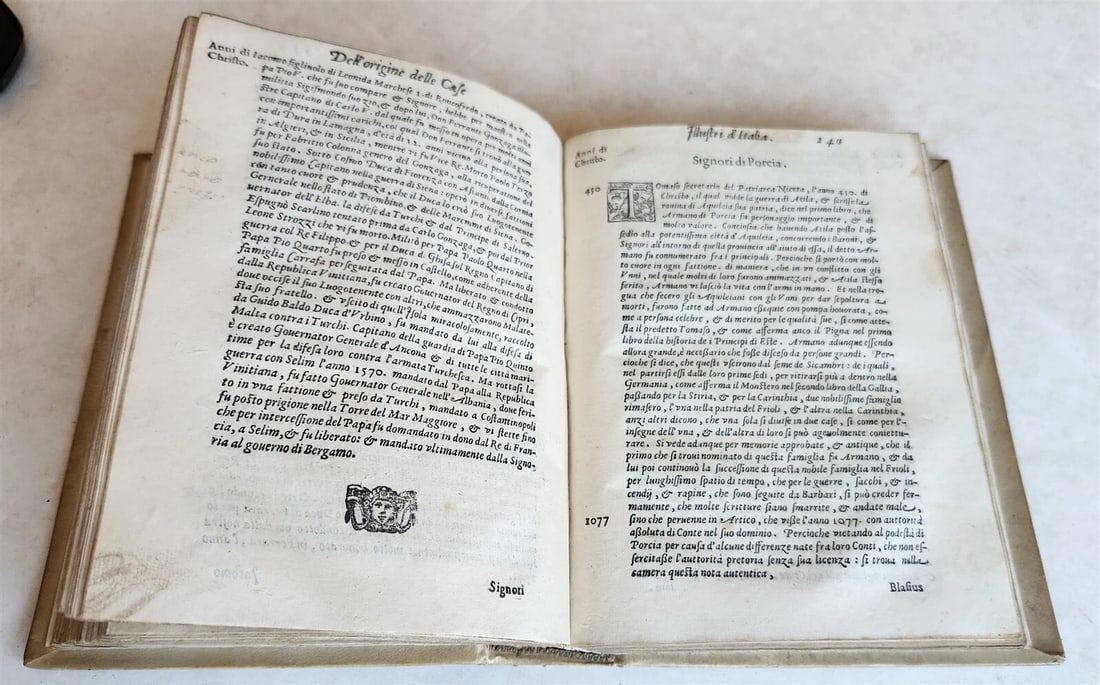 Dell'origine delle Case
Anni di
Christo.
Iacomo figliuolo di Leonida Marchese
pa Pio V. che fu suo compare & Signore, hebbe per maestro nella
militia Sigismondo suo zio, & dopo lui, Don Ferrante Gonzaga Illu-
stre Capitano di Carlo V. dal quale fu messo in
con importantissimi carichi, col qual Don Ferrante si trovò in persona
ra di Dura in Lamagna, d'età di 12. anni vicino alla persona sua,
in Algieri, & in Sicilia, mentre vi fu Vice Re. Morto Paolo Terzo
fu per Fabritio Colonna genero del Gonzaga, alla ricuperatione del
suo stato. Sotto Cosmo Duca di Fiorenza con Ascanio dalla Cornia
nobilissimo Capitano nella guerra di Siena: operò in diverse fattioni
con tanto cuore & prudenza, che il Duca lo creò suo Luogotenente
Gernerale nello stato di Piombino, & delle Maremme di Siena, Go-
uernator dell'Elba. la difese da Turchi & dal Principe di Salerno.
Espugnò Scarlino tentato prima da Carlo Gonzaga, & poi dal Prior
Leone Strozzi che vi fu morto. Militò per Papa Paolo Quarto nella
guerra col Re Filippo & per il Duca di Ghisa sul Regno Capitano di
Papa Pio Quarto fu preso & messo in Castello, come adherente della
famiglia Carrafa perseguitata dal Papa. Ma liberato & condotto
dalla Republica Vinitiana, fu creato Gouernator del Regno di Cipri,
doue occise il suo Luogotenente con altri, che ammazzarono Malate-
sta suo fratello. & vscito di quell'Isola miracolosamente, raccolto
da Guido Baldo Duca d'Vrbino, fu mandato da lui alla difesa di
Malta contra i Turchi. Capitano della guardia di Papa Pio Quinto
è creato Gouernator Generale d'Ancona & di tutte le città mari-
time per la difesa loro contra l'armata Turchesca. Ma rottasi la
guerra con Selim l'anno 1570. mandato dal Papa alla Republica
Vinitiana, fu fatto Gouernator Generale nell'Albania, doue feri-
to in vna fattione & preso da Turchi, mandato a Costantinopoli
fu posto prigione nella Torre del Mar Maggiore, & vi stette fino
che per intercessione del Papa fu domandato in dono dal Re di Fran-
cia, a Selim, & fu liberato: & mandato vltimamente dalla Signo-
ria al gouerno di Bergamo.
Signori
Illustri d'Italia. 240
Anni di
Christo.
Signori di Porcia.
450
TOmaso secretario del Patriarca Nicetta, l'anno 450. di
Christo, il qual vidde la guerra di Atila, & scrisse la
rouina di Aquileia sua patria, dice nel primo libro, che
Armano di Porcia fu personaggio importante, & di
molto valore. Conciosia che hauendo Atila posto l'as-
sedio alla potentissima città d'Aquileia, concorrendo i Baroni, &
Signori all'intorno di quella prouincia all'aiuto di essa, il detto Ar-
mano fu connumerato fra i principali. Percioche si portò con mol-
to cuore in ogni fattione. di maniera, che in vn conflitto con gli
Vnni, nel quale molti di loro furono ammazzati, & Atila stesso
ferito, Armano vi lasciò la vita con l'armi in mano. Et nella tre-
gua che fecero gli Aquileiani con gli Vnni per dar sepoltura a
morti, furono fatte ad Armano essequie con pompa honorata, co-
me a persona celebre, & di merito per le qualità sue, si come atte-
sta il predetto Tomaso, & come afferma anco il Pigna nel primo
libro della historia de i Principi di Este. Armano adunque essendo
allora grande, è necessario che fosse disceso da persone grandi. Per-
cioche si dice, che questi vscirono dal seme de Sicambri: de i quali,
nel partirsi essi dalle loro prime sedi, per ritirarsi più a dentro nella
Germania, come afferma il Monstero nel secondo libro della Gallia,
passando per la Stiria, & per la Carinthia, due nobilissime famiglie
rimasero, l'vna nella patria del Frioli, & l'altra nella Carinthia,
anzi altri dicono, che vna sola si diuise in due case, si come per l'-
insegne dell'vna, & dell'altra di loro si può ageuolmente coniettu-
rare. Si vede adunque per memorie approbate, & antique, che il
primo che si troui nominato di questa famiglia fu Armano, & da
lui poi continouò la successione di questa nobile famiglia nel Frioli,
per lunghissimo spatio di tempo, che per le guerre, sacchi, & in-
cendij, & rapine, che sono seguite da Barbari, si può creder fer-
mamente, che molte scritture siano smarrite, & andate male,
1077
sino che peruenne in Artico, che visse l'anno 1077. con auttorità
assoluta di Conte nel suo dominio. Percioche vietando al podestà di
Porcia per causa d'alcune differenze nate fra loro Conti, che non es-
sercitasse l'auttorità pretoria senza sua licenza: si troua nella
camera questa nota autentica,
Blasius